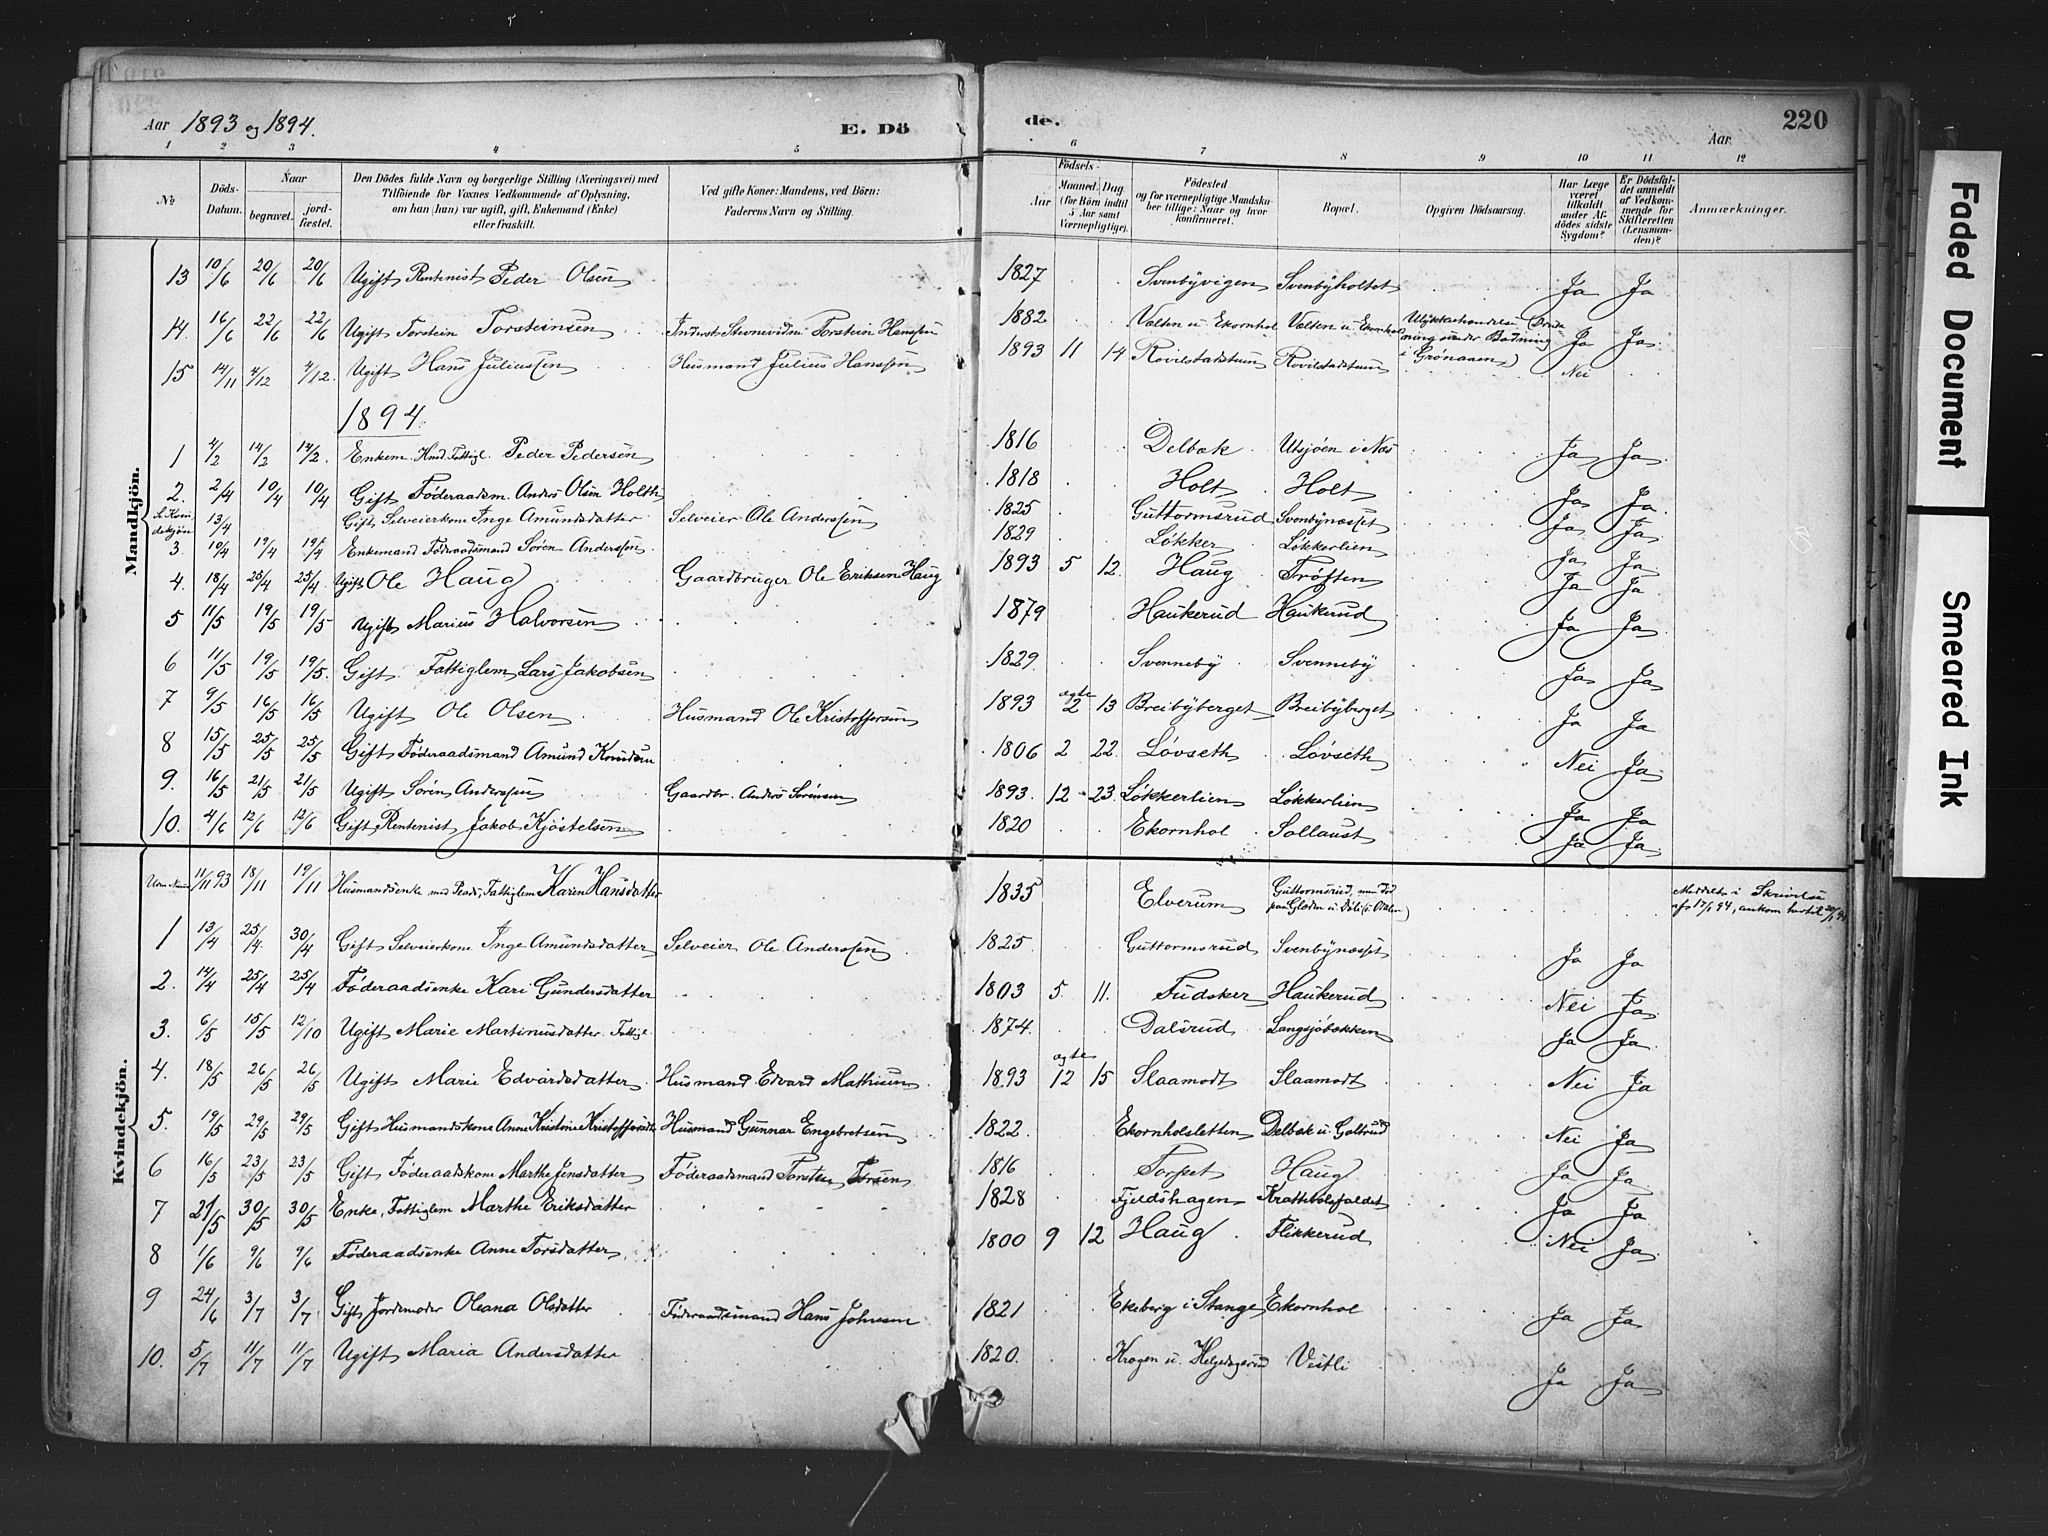 Aar 1893 og 1894.
E. Dö de.
Aar
220
1 2 3 4 5 6 7 8 9 10 11 12
№
Döds-Datum.
Naar begravet. jordfæstet.
Den Dödes fulde Navn og borgerlige Stilling (Næringsvei) med Tilföiende for Voxnes Vedkommende af Oplysning, om han (hun) var ugift, gift, Enkemand (Enke) eller fraskilt.
Ved gifte Koner: Mandens, ved Börn: Faderens Navn og Stilling.
Födsels- Aar Maaned. Dag (for Börn indtil 5 Aar samt Værnepligtige).
Födested og for værnepligtige Mandskaber tillige: Naar og hvor konfirmeret.
Bopæl.
Opgiven Dödsaarsag.
Har Læge været tilkaldt under Afdödes sidste Sygdom?
Er Dödsfaldet anmeldt af Vedkommende for Skifteretten (Lensmanden)?
Anmærkninger.
Mandkjön.
13 10/6 20/6 20/6 Ugift Rentenist Peder Olsen 1827 Svenbyvigen Svenbyholtet Ja Ja
14 16/6 22/6 22/6 Ugift Torstein Torsteinsen Torstein Hanssen 1882 Valten u. Ekornhol Valten u. Ekornhol Ulykkeshændelse (Drukning under Badning i Grønaaen) Ja Ja
15 14/11 4/12 4/12. Ugift Hans Juliussen Husmand Julius Hanssen 1893 11 14 Rovilstadstuen Rovilstadstuen Nei
1894.
1 4/2 14/2 14/2. Enkem. Hmd. Fattigl. Peder Pedersen 1816 Delbæk Utsjøen i Næs Ja Ja
2. 2/4 10/4 10/4 Gift Føderaadsm. Anders Olsen Holth 1818 Holt Holt Ja Ja
Se Kvindekjøn 13/4 Gift Selveierkone Inge Amundsdatter Selveier Ole Anderssen 1825 Guttormsrud Svenbynæsset Ja Ja
3. 10/4 19/4 19/4 Enkemand Føderaadsmand Søren Anderssen 1829 Løkker Løkkerlien Ja Ja
4. 18/4 25/4 25/4 Ugift Ole Haug Gaardbruger Ole Eriksen Haug 1893 5 12. Haug Trøften Ja Ja
5 11/5 19/5 19/5 Ugift Marius Halvorsen 1879 Haukerud Haukerud Ja Ja
6 11/5 19/5 19/5 Gift Fattiglem Lars Jakobsen 1829. Svenneby Svenneby Ja Ja
7 9/5 16/5 16/5 Ugift Ole Olsen Husmand Ole Kristoffersen 1893 ægte 2 13 Breibyberget Breibyberget Ja Ja
8 15/5 25/5 25/5 Gift Føderaadsmand Amund Knudsen 1806 2 22. Løvseth Løvseth Nei Ja
9. 16/5 21/5 21/5 Ugift Søren Anderssen Gaardbr. Anders Sørensen 1893. 12 23. Løkkerlien Løkkerlien Ja Ja
10. 4/6 12/6 12/6 Gift Rentenist Jakob Kjøstelsen 1820 Ekornhol Sollaust Ja Ja
Kvindekjön.
Uden Numer 11/11 93 18/11 19/11 Husmandsenke med Plads, Fattiglem Karen Hansdatter 1835 Elverum Guttormsrud, men død paa Glæden u. Døli (i Odalen) Meddelt i Skrivelse af 17/1 94, ankom hertil 20/1 94
1 13/4 25/4. 30/4 Gift Selveierkone Inge Amundsdatter Selveier Ole Anderssen 1825 Guttormsrud Svenbynæsset Ja Ja
2. 14/4 25/4 25/4 Føderaadsenke Kari Gundersdatter 1803 5. 11. Fudsker Haukerud Nei Ja
3. 6/5 15/5 12/10 Ugift Marie Martinusdatter Fattigl 1874. Dalsrud Langsjøbakken Ja Ja
4. 18/5 26/5 26/5 Ugift Marie Edvardsdatter Husmand Edvard Mathisen 1893 ægte 12 15 Slaamodt Slaamodt Nei Ja
5. 19/5 29/5 29/5 Gift Husmandskone Anne Kristine Kristoffersdtr Husmand Gunnar Engebretsen 1822. Ekornholsletten Delbæk u. Goltrud Nei Ja
6 16/5 23/5 23/5 Gift Føderaadskone Marthe Jensdatter Føderaadsmand Torsten 1816 Torpet Haug Ja Ja
7 21/5 30/5 30/5 Enke, Fattiglem Marthe Eriksdatter 1828 Fjeldshagen Kratteslsfaldet Ja Ja
8 1/6 9/6 9/6 Føderaadsenke Anne Torsdatter 1800 9 12 Haug Flikkerud Nei Ja
9 24/6 3/7 3/7 Gift Jordemoder Oleana Olsdatter Føderaadsmand Hans Johnsen 1821 Ekeberg i Stange Ekornhol Ja Ja
10. 5/7 11/7 11/7 Ugift Maria Andersdatter 1820. Krogen u. Helgedagsrud Vestli Ja Ja
Faded Document
Smeared Ink